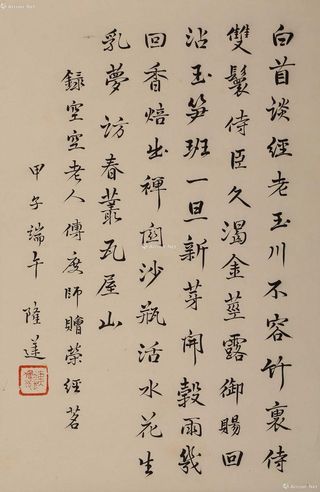 白首談經老玉川不容竹裏侍
雙鬟侍臣久渴金莖露御賜回
沾玉笋班一旦新芽開穀雨幾
回香焙出禪窗沙瓶活水花生
乳夢訪春叢瓦屋山
錄空空老人傳度師贈蒙經茗
甲子端午隆蓮